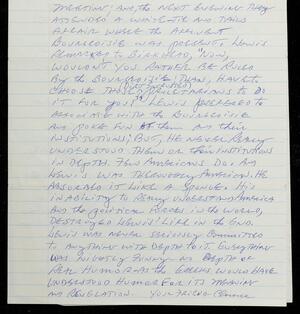 MEETING; AND, THE NEXT EVENING THEY
ATTENDED A WHITE TIE AND TAILS
AFFAIR WHERE THE AFFLUENT
BOURGEOISIE WAS PRESENT. LEWIS
REMARKED TO BIRKHEAD, "NOW,
WOULDN'T YOU RATHER BE RULED
BY THE BOURGEOISIE THAN, HAVE TO
CHOOSE THOSE PROLETARIANS TO DO
IT FOR YOU?" LEWIS PREFERRED TO
ASSOCIATE WITH THE BOURGEOISIE
AND POKE FUN AT THEM AND THEIR
INSTITUTIONS; BUT, HE NEVER REALLY
UNDERSTOOD THEM OR THEIR INSTITUTIONS
IN DEPTH. FEW AMERICANS DO. AND
LEWIS WAS THOROUGHLY AMERICAN. HE
ABSORBED IT LIKE A SPONGE. HIS
INABILITY TO REALLY UNDERSTAND AMERICA
AND THE POLITICAL FORCES IN THE WORLD,
DESTROYED LEWIS LIKE IN THE END.
LEWIS WAS NEVER SERIOUSLY COMMITTED
TO ANYTHING WITH DEPTH TO IT. EVERYTHING
WAS FUNNY NO DEPTH OF
REAL HUMOR AS THE GREEKS WOULD HAVE
UNDERSTOOD HUMOR FOR ITS MEANING
AS REVELATION. YOUR FRIEND